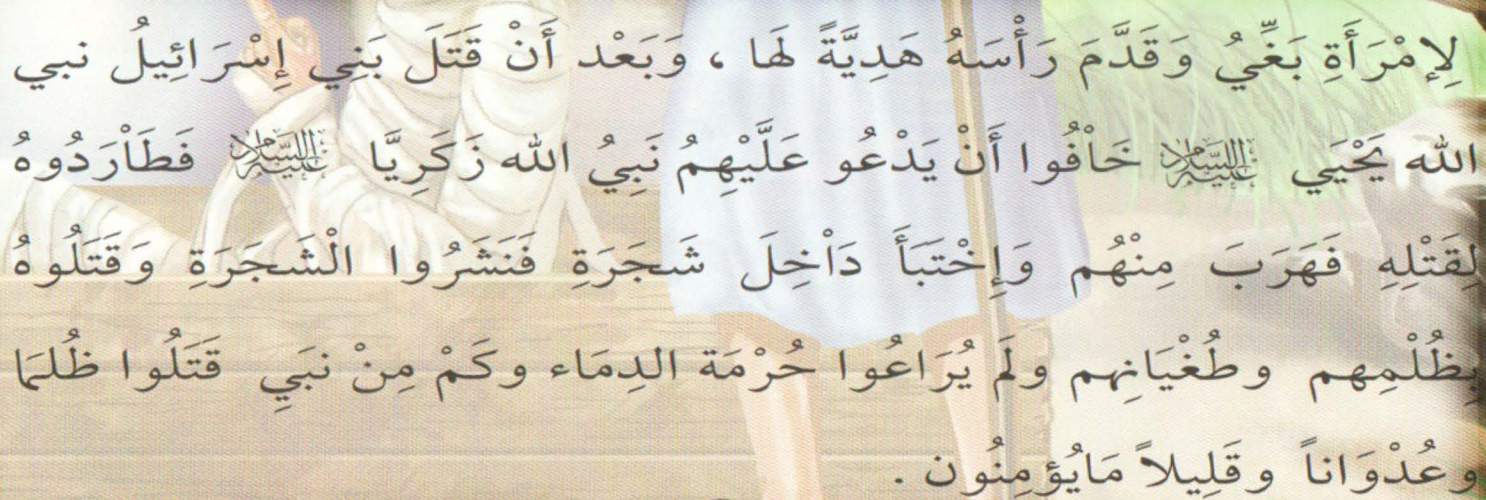 لِإمْرَأَةِ بَغِّيُ وَقَدَّمَ رَأْسَهُ هَدِيَّةً لَهَا ، وَبَعْد أَنْ قَتَلَ بَنِي إِسْرَائِيلُ نبي
الله يَحْيَي عَلَيْهِ السَّلَام خَاْفُوا أَنْ يَدْعُو عَلَّيْهِمُ نَبِيُ الله زَكَرِيَّا عَلَيْهِ السَّلَام فَطَاْرَدُوهُ
لِقَتْلِهِ فَهَرَبَ مِنْهُم وَإِخْتَبَأَ دَاْخِلَ شَجَرَةِ فَنَشَرُوا الْشَجَرَةِ وَقَتَلُوهُ
بِظُلْمِهِم وطُغْيَانِهِم ولَم يُرَاعُوا حُرْمَة الدِمَاء وكَمْ مِنْ نبَيِ قَتَلُوا ظُلمَا
وعُدْوَاناً وقَلِيلاً مَايُؤمِنُون .